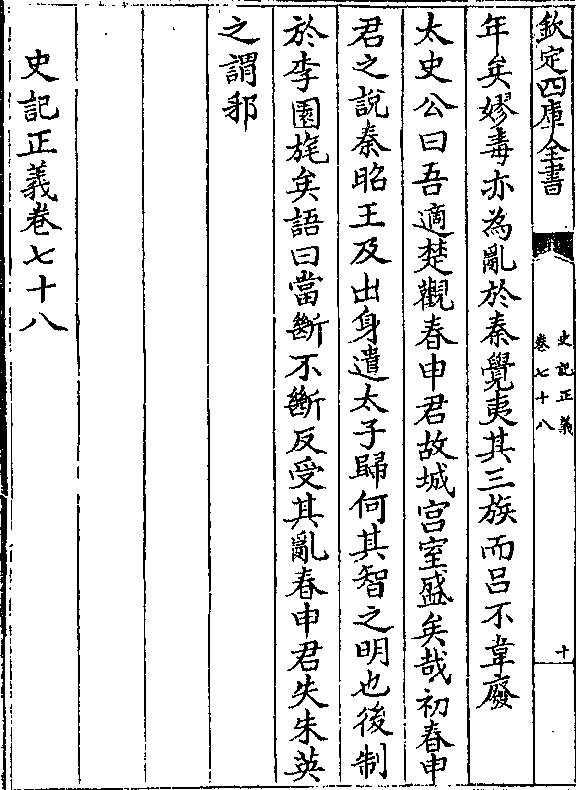 欽定四庫全書
史記正義
卷七十八
十
年矣嫪毐亦為亂於秦覺夷其三族而呂不韋廢
太史公曰吾適楚觀春申君故城宮室盛矣哉初春申
君之說秦昭王及出身遣太子歸何其智之明也後制
於李園旄矣語曰當斷不斷反受其亂春申君失朱英
之謂邪
史記正義卷七十八